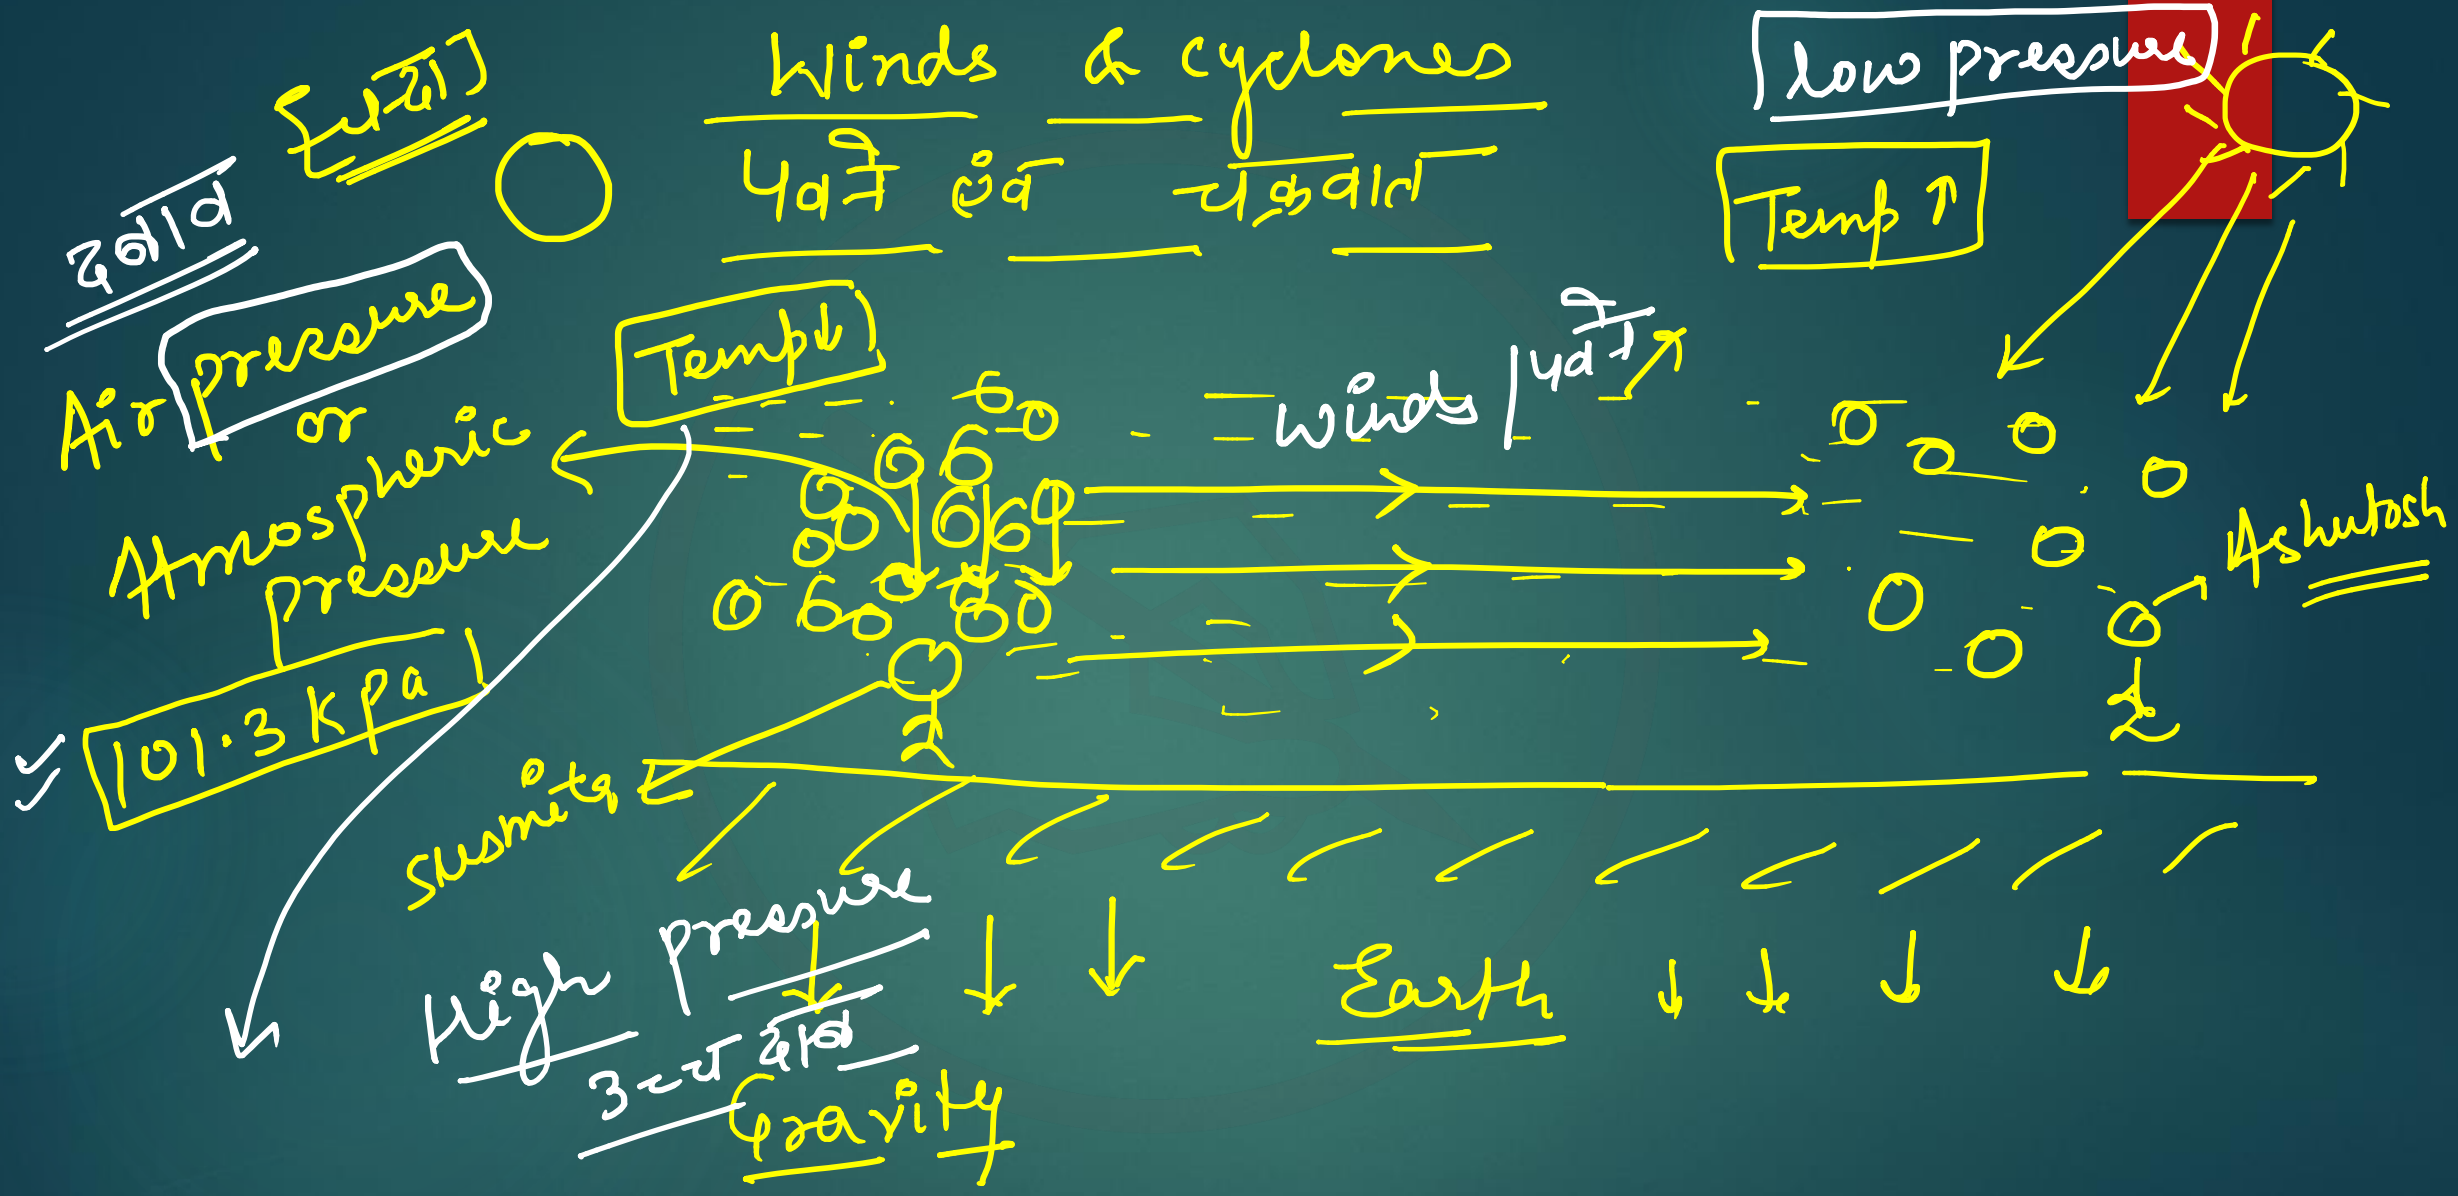 Winds & cyclones
पवनें एवं चक्रवात
low pressure
Temp ↑
दबाव
Air pressure
or
Atmospheric
pressure
101.3 KPa
Temp ↓
Winds | पवनें
Ashutosh
Susmita
High pressure
उच्च दाब
Earth
Gravity